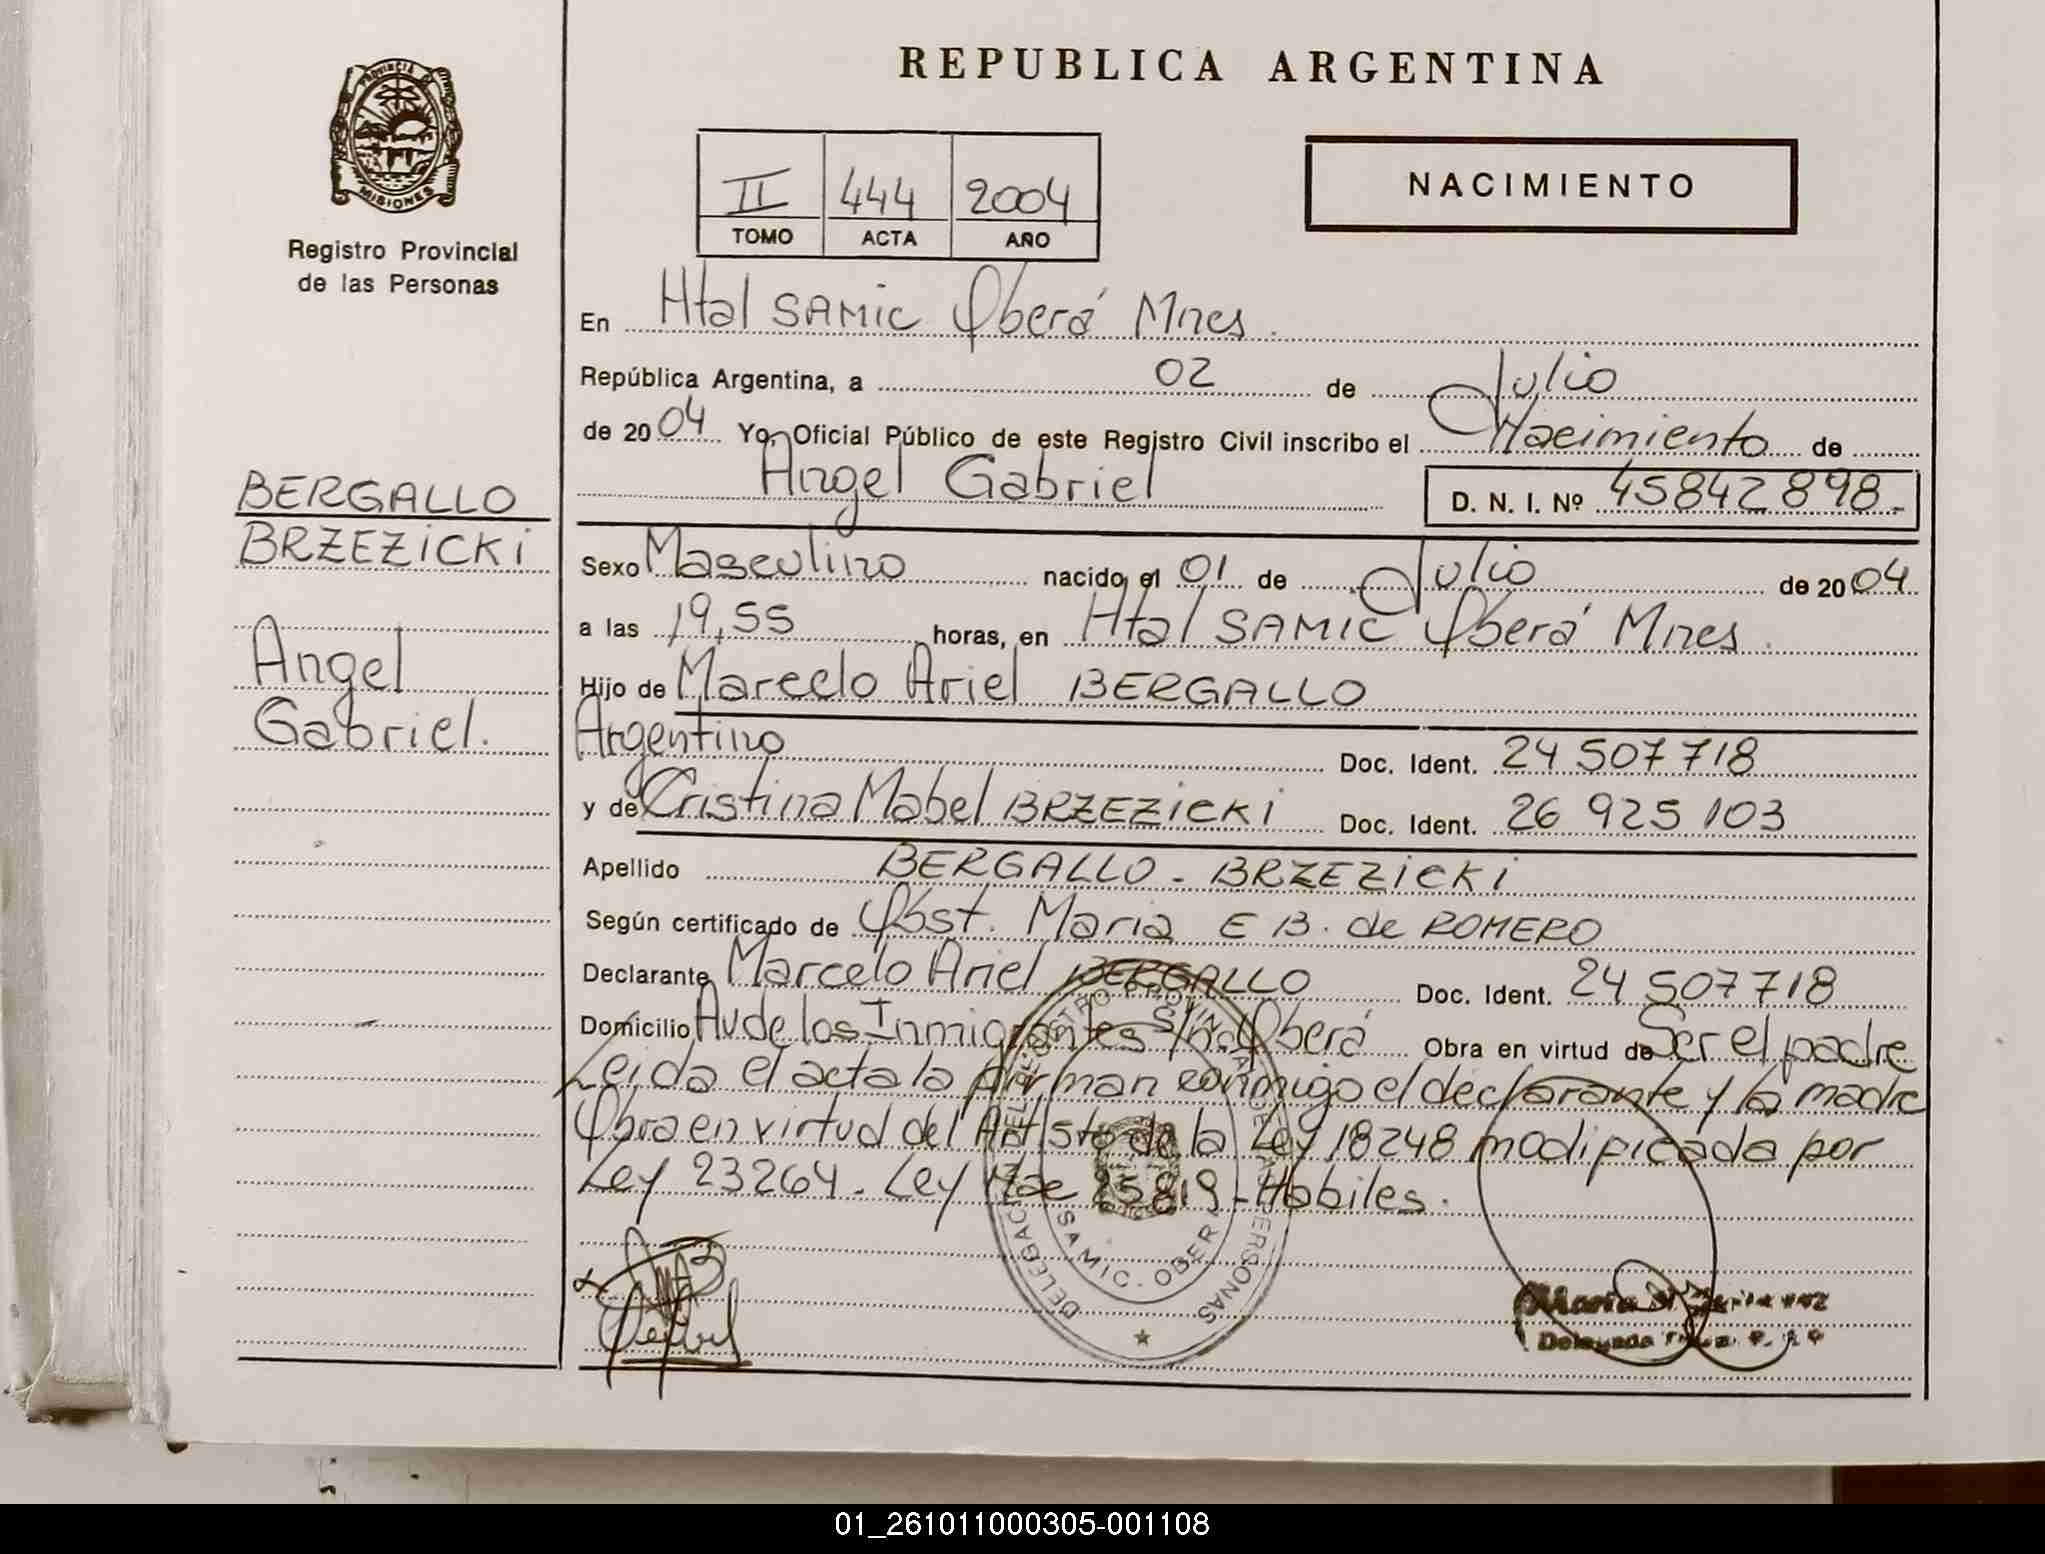 REPUBLICA ARGENTINA
PROVINCIA D
MISIONES
Registro Provincial
de las Personas
II 444 2004
TOMO ACTA AÑO
NACIMIENTO
En Htal SAMIC Oberá Mnes.
República Argentina, a 02 de Julio
de 2004 Yo, Oficial Público de este Registro Civil inscribo el Nacimiento de
Angel Gabriel D. N. I. Nº 45842898.
BERGALLO
BRZEZICKI
Angel
Gabriel.
Sexo Masculino nacido el 01 de Julio de 2004
a las 19,55 horas, en Htal SAMIC Oberá Mnes.
Hijo de Marcelo Ariel BERGALLO
Argentino Doc. Ident. 24 507 718
y de Cristina Mabel BRZEZICKI Doc. Ident. 26 925 103
Apellido BERGALLO - BRZEZICKI
Según certificado de Obst. Maria E B. de ROMERO
Declarante Marcelo Ariel BERGALLO Doc. Ident. 24 507718
Domicilio Av de los Inmigrantes S/no Oberá Obra en virtud de Ser el padre
Leida el acta la firman conmigo el declarante y la madre
Obra en virtud del Art 5to de la Ley 18248 modificada por
Ley 23264. Ley Nac 25819 - Habiles.
DELEGACION DEL REGISTRO PROVINCIAL DE LAS PERSONAS
SAMIC - OBERA
Maria
Delegada
01_261011000305-001108